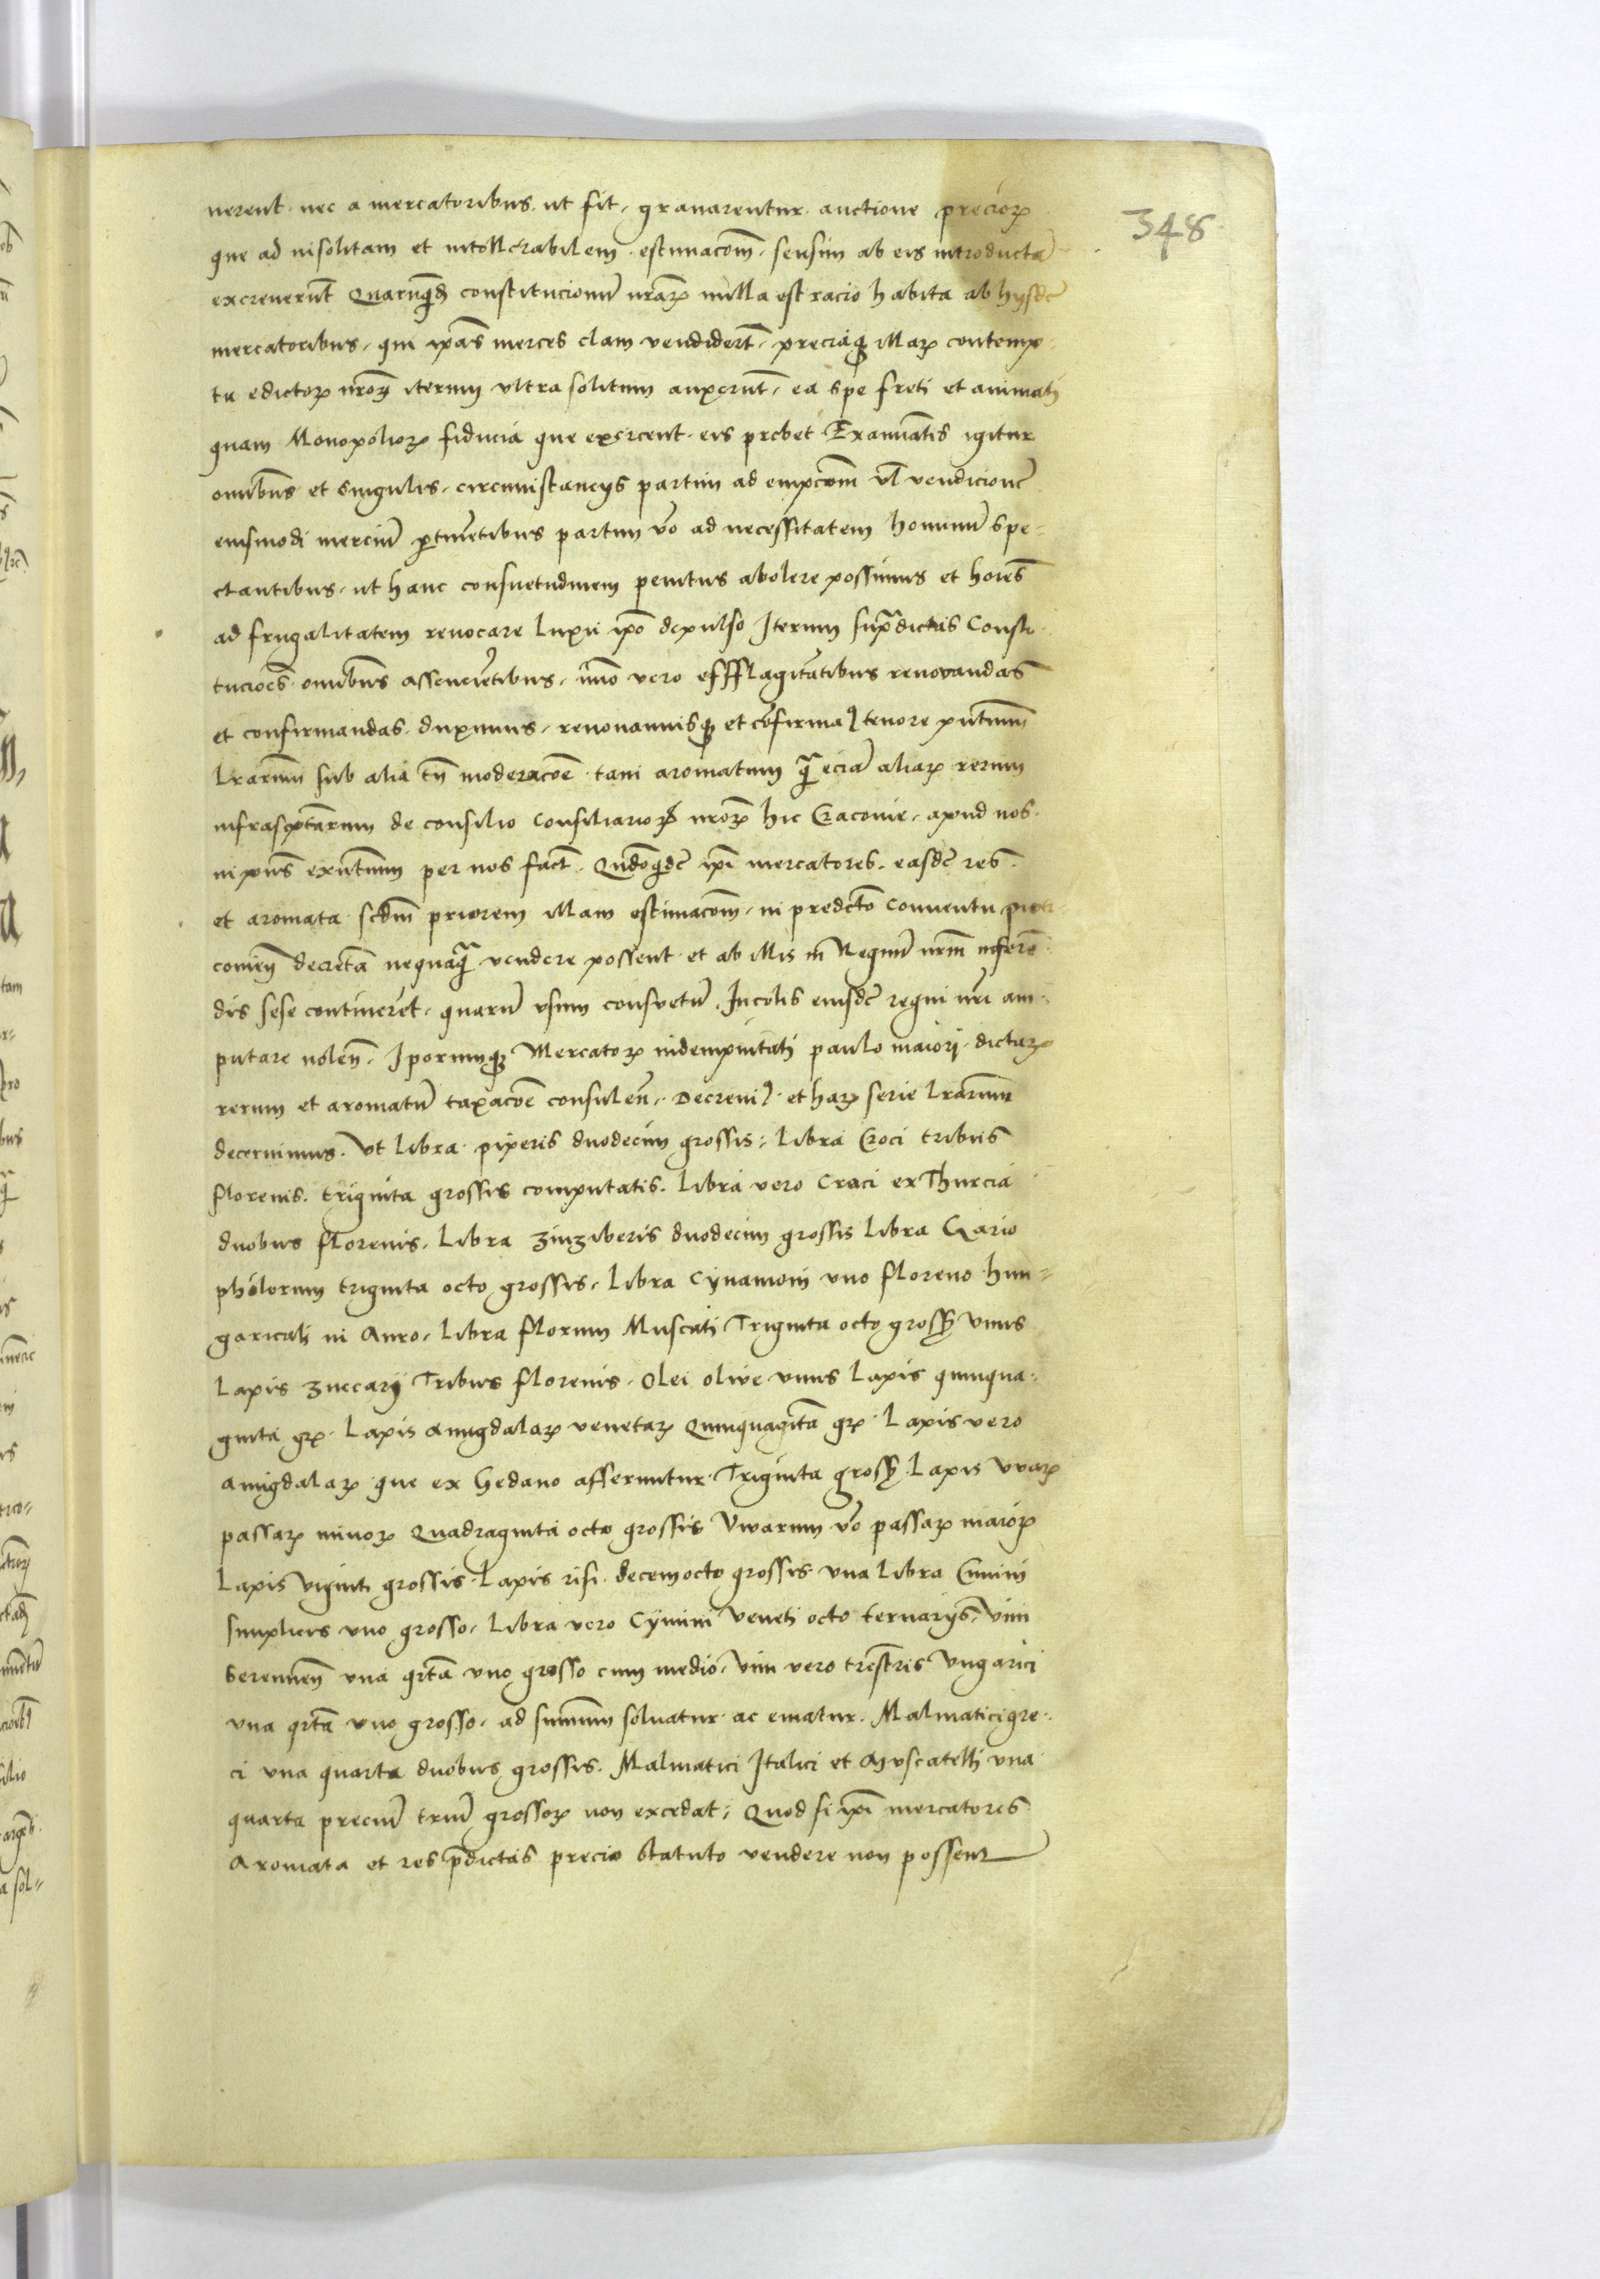 348
nerent nec a mercatoribus ut fit, gravarentur auctione precioꝝ
que ad insolitam et intollerabilem estimacoem̄ sensim ab eis introductā
excreverūt Quarūquid̄ constitucionū nr̄aꝝ nulla est racio habita ab hysdē
mercatoribus, qui ipās merces clam vendiderūt, preciaqꝫ illaꝝ contemp
tu edictoꝝ nr̄oꝝ iterum ultra solitum auxerūt, ea spe freti et animati
quam Monopolioꝝ fiducia que exercent eis prebet Examīatis igitur
omībus et singulis, circumstancijs partim ad empcōem vl̄ vendicionē
eiusmodi merciū ꝑtinētibus partim v̄o ad necessitatem hominū spe
ctantibus, ut hanc consuetudinem penitus abolere possimus et hoīes
ad frugalitatem revocare luxu ip̄o depulso Iterum sup̄dictas Consti
tucioēs omībus assencientibus, īmo vero effflagitātibus renovandas
et confirmandas duximus, renovavimusqꝫ et cōfirmaꝫ tenore p̄ntium
Lrārum sub alia tn̄ moderacōe tam aromatum q̄ eciā aliaꝝ rerum
infrascptārum de consilio Consiliarioꝝ nr̄oꝝ hic Cracovie, apud nos
in p̄ns exn̄tium per nos fact̄ Qn̄doquidē ip̄i mercatores easdē res
et aromata scdm̄ priorem illam estimacōem, in predcto Conventu piotr
covien̄ decretā nequaq̄ vendere possent et ab illis in Regnū nr̄m inferē
dis sese continerēt, quarū usum consuetū Incolis eiusdē regni nr̄i am
putare nolen̄ Iporumqꝫ Mercatoꝝ indempnitati paulo maiori dictaꝝ
rerum et aromatū taxacōe consulen̄, Decreviꝫ et haꝝ serie lrārum
decernimus. Ut libra piperis duodecim grossis, Libra Croci tribus
florenis triginta grossis computatis. Libra vero Craci ex Thurcia
duobus florenis. Libra zinziberis duodecim grossis Libra Gario
philorum triginta octo grossis, Libra Cynamoni uno floreno hun
garicali in Auro, Libra florum Muscati Triginta octo grossꝭ Unus
Lapis zuccarij Tribus florenis. Olei olive unus Lapis quinqua
ginta grꝭ. Lapis amigdalaꝝ venetaꝝ Quinquagītā grꝭ. Lapis vero
amigdalaꝝ que ex Gedano afferuntur Triginta grossꝭ Lapis Uvaꝝ
passaꝝ minoꝝ Quadraginta octo grossis Uvarum v̄o passaꝝ maioꝝ
Lapis viginti grossis Lapis risi decemocto grossis una Libra Cimini
simplicis uno grosso, Libra vero Cymini Veneti octo ternarijs, Vini
Seremien̄ una qrtā uno grosso cum medio, vini vero trēstris Ungarici
una qrtā uno grosso, ad summum solvatur ac ematur. Malmatici gre
ci una quarta duobus grossis. Malmatici Italici et Muscatelli una
quarta preciū triū grossoꝝ non excedat, Quod si ip̄i mercatores
Aromata et res p̄dictas precio statuto vendere non possent